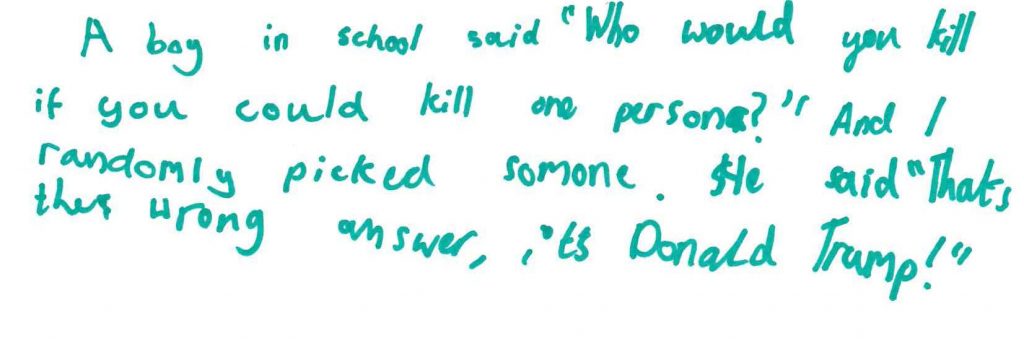 A boy in school said "Who would you kill
if you could kill one person?" And I
randomly picked somone. He said "Thats
the wrong answer, its Donald Trump!"